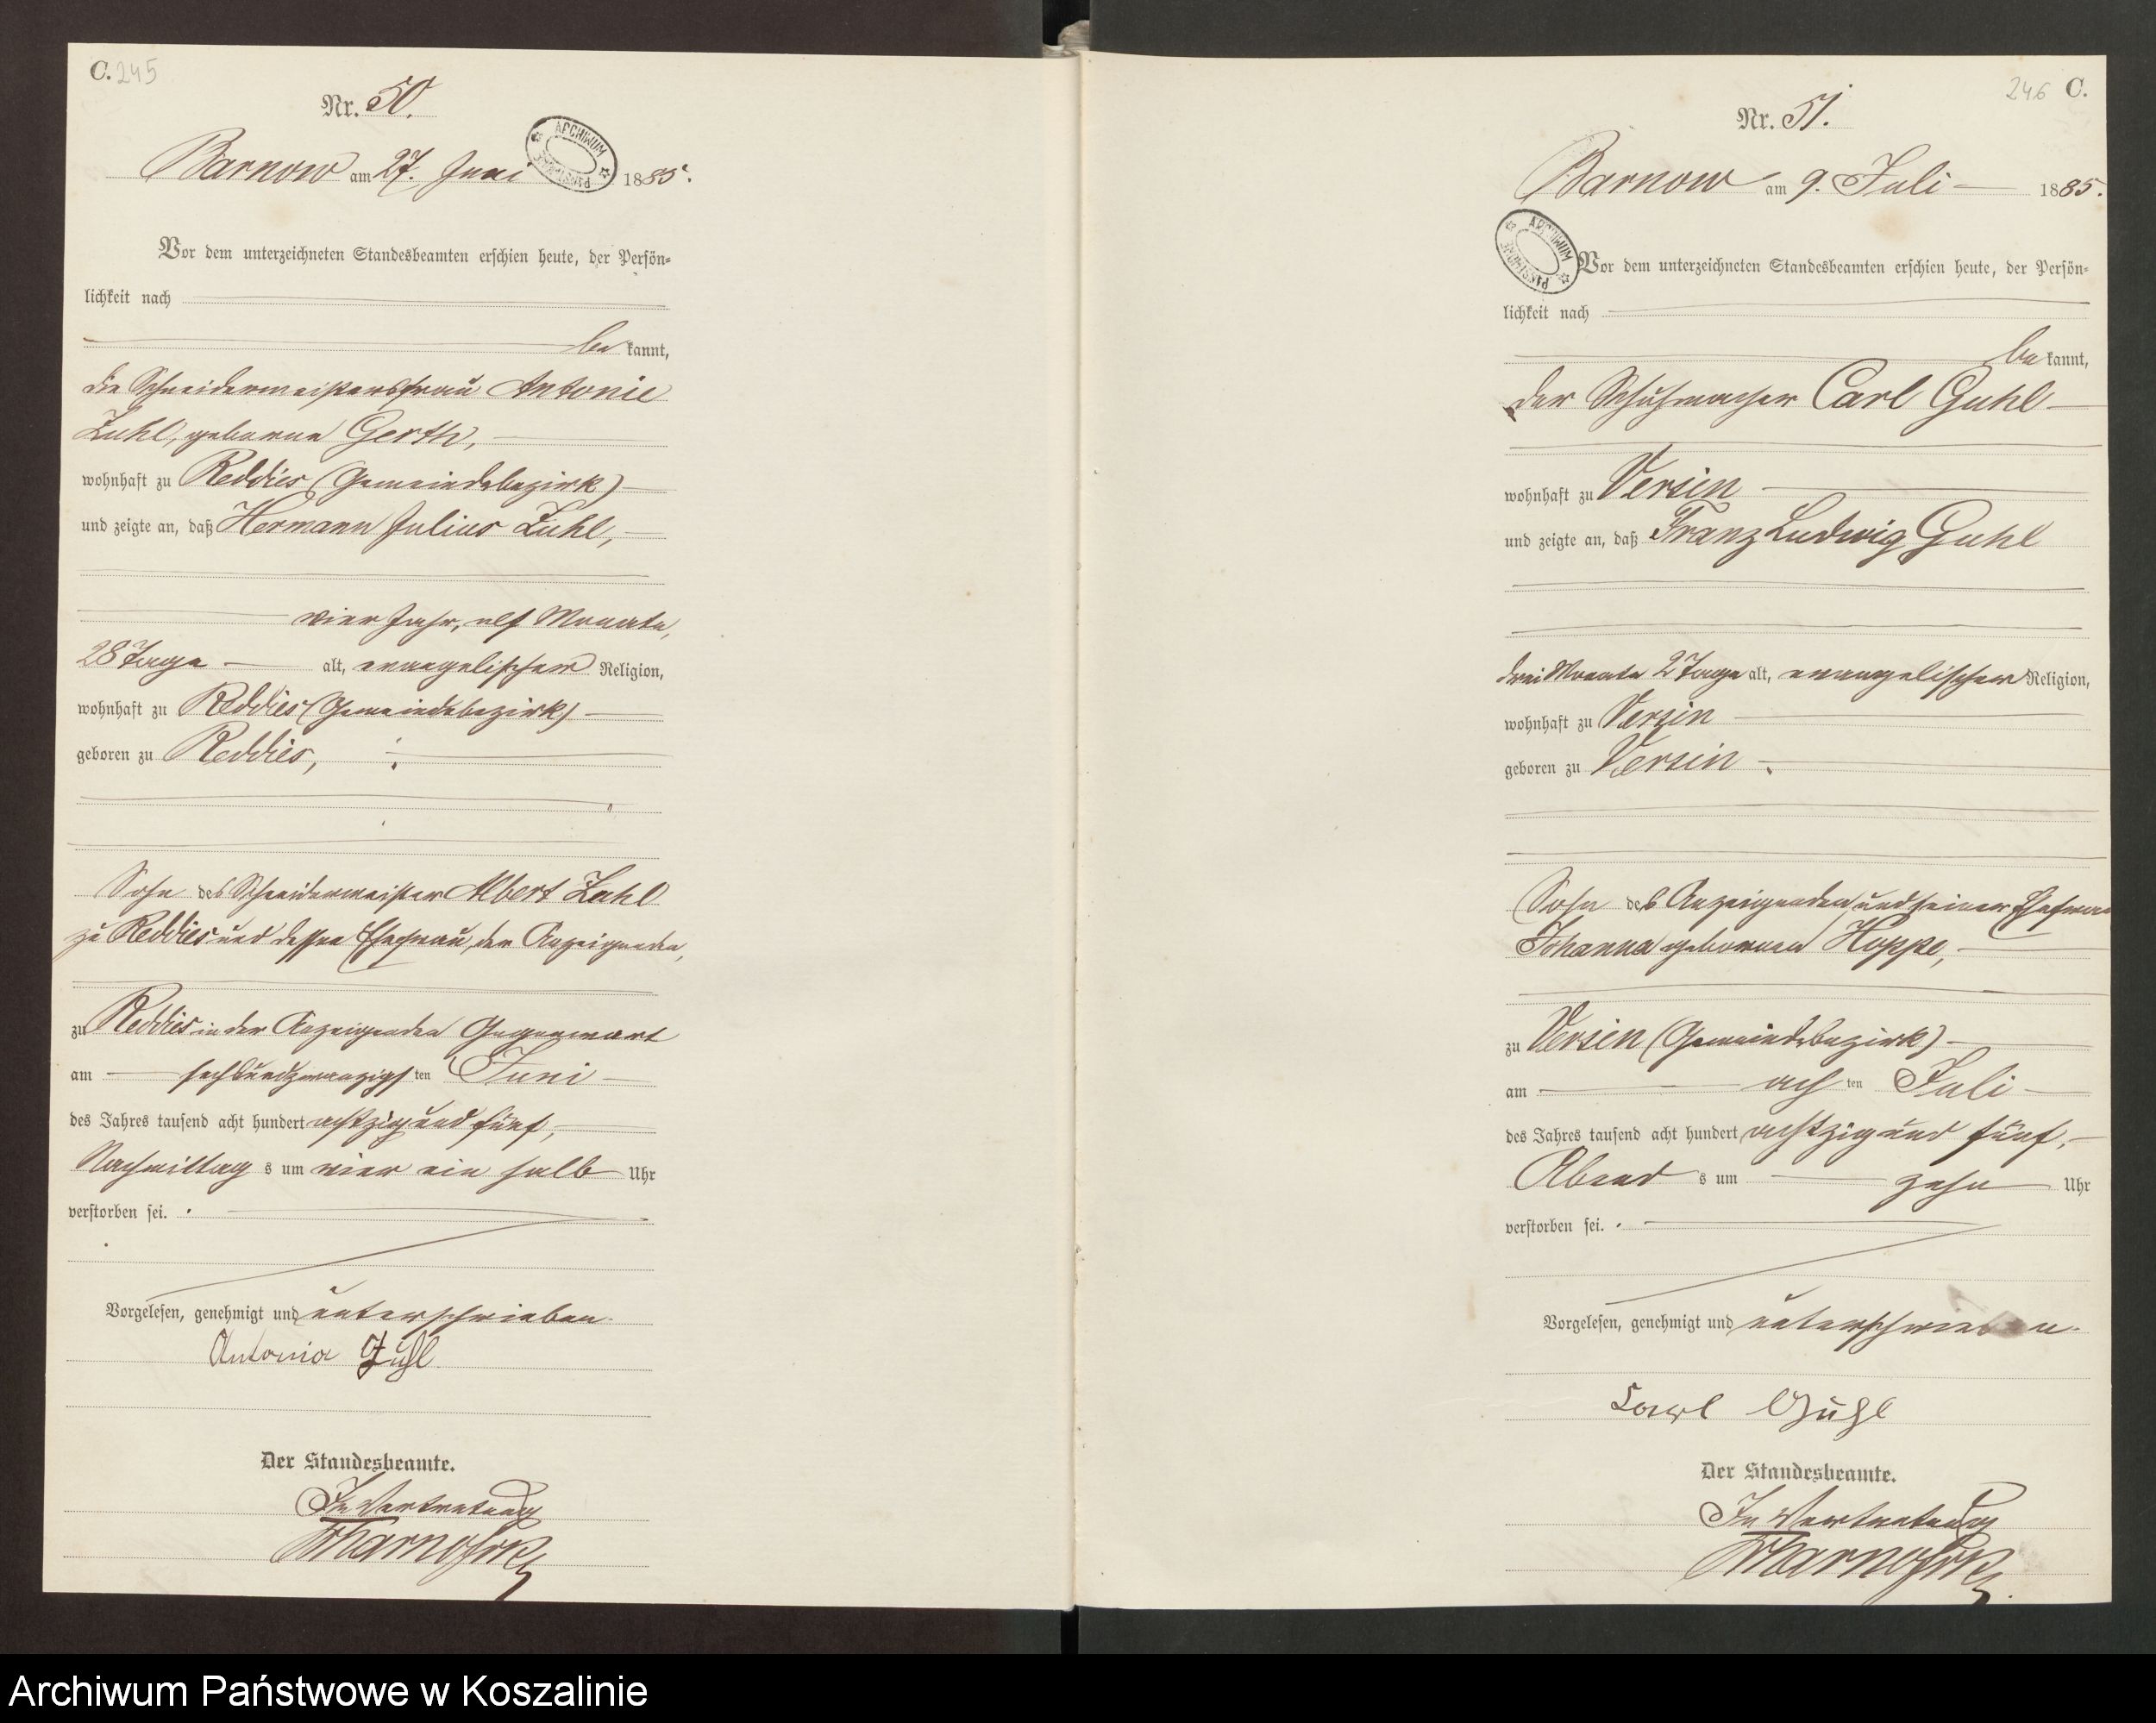 C. 245
Nr. 50.
ARCHIWUM
Barnow am 27. Juni 1885.
Vor dem unterzeichneten Standesbeamten erschien heute, der Persön-
lichkeit nach
be kannt,
die Schneidermeistersfrau Antonie
Zuhl, geborene Gerth,
wohnhaft zu Reddies (Gemeindebezirk)
und zeigte an, daß Hermann Julius Zuhl,
vier Jahr, elf Monate,
28 Tage alt, evangelischer Religion,
wohnhaft zu Reddies (Gemeindebezirk)
geboren zu Reddies,
Sohn des Schneidermeister Albert Zuhl
zu Reddies und dessen Ehefrau, der Anzeigenden,
zu Reddies in der Anzeigenden Gegenwart
am sechsundzwanzigsten Juni
des Jahres tausend acht hundert achtzig und fünf,
Nachmittag s um vier ein halb Uhr
verstorben sei.
Vorgelesen, genehmigt und unterschrieben.
Antonie Zuhl
Der Standesbeamte.
In Vertretung
246 C.
Nr. 51.
Barnow am 9. Juli 1885.
ARCHIWUM
Vor dem unterzeichneten Standesbeamten erschien heute, der Persön-
lichkeit nach
be kannt,
der Schuhmacher Carl Guhl
wohnhaft zu Versin
und zeigte an, daß Franz Ludwig Guhl
drei Monate 2 Tage alt, evangelischer Religion,
wohnhaft zu Versin
geboren zu Versin
Sohn des Anzeigenden und seiner Ehefrau
Johanna geborenen Hoppe,
zu Versin (Gemeindebezirk)
am ach ten Juli
des Jahres tausend acht hundert achtzig und fünf,
Abend s um zehn Uhr
verstorben sei.
Vorgelesen, genehmigt und unterschrieben.
Carl Guhl
Der Standesbeamte.
In Vertretung
Archiwum Państwowe w Koszalinie